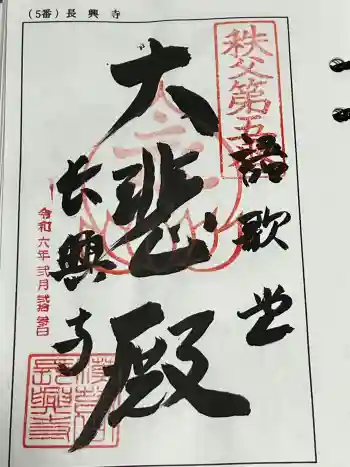 (5番)長興寺
秩父第五番
語歌堂
大悲殿
長興寺
令和六年弐月弐拾参日